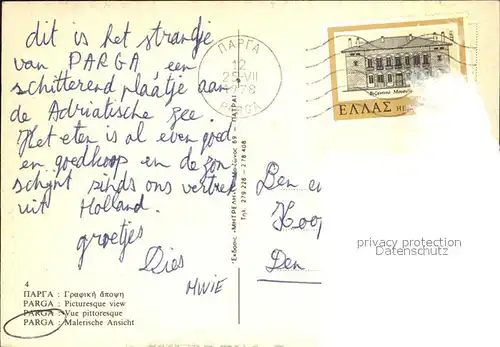 dit is het strandje
van PARGA, een
schitterend plaatje aan
de Adriatische zee.
Het eten is al even goed
en goedkoop en de zon
schijnt sinds ons vertrek
uit Holland.
groetjes
Dies
MWIE
4
ΠΑΡΓΑ : Γραφική ἄποψη
PARGA : Picturesque view
PARGA : Vue pittoresque
PARGA : Malerische Ansicht
ΠΑΡΓΑ
12
25 VII
78
PARGA
ΕΛΛΑΣ
69 - ΠΑΤΡΑΙ
Τηλ. 279.226 - 278.408
Den
privacy protection
Datenschutz